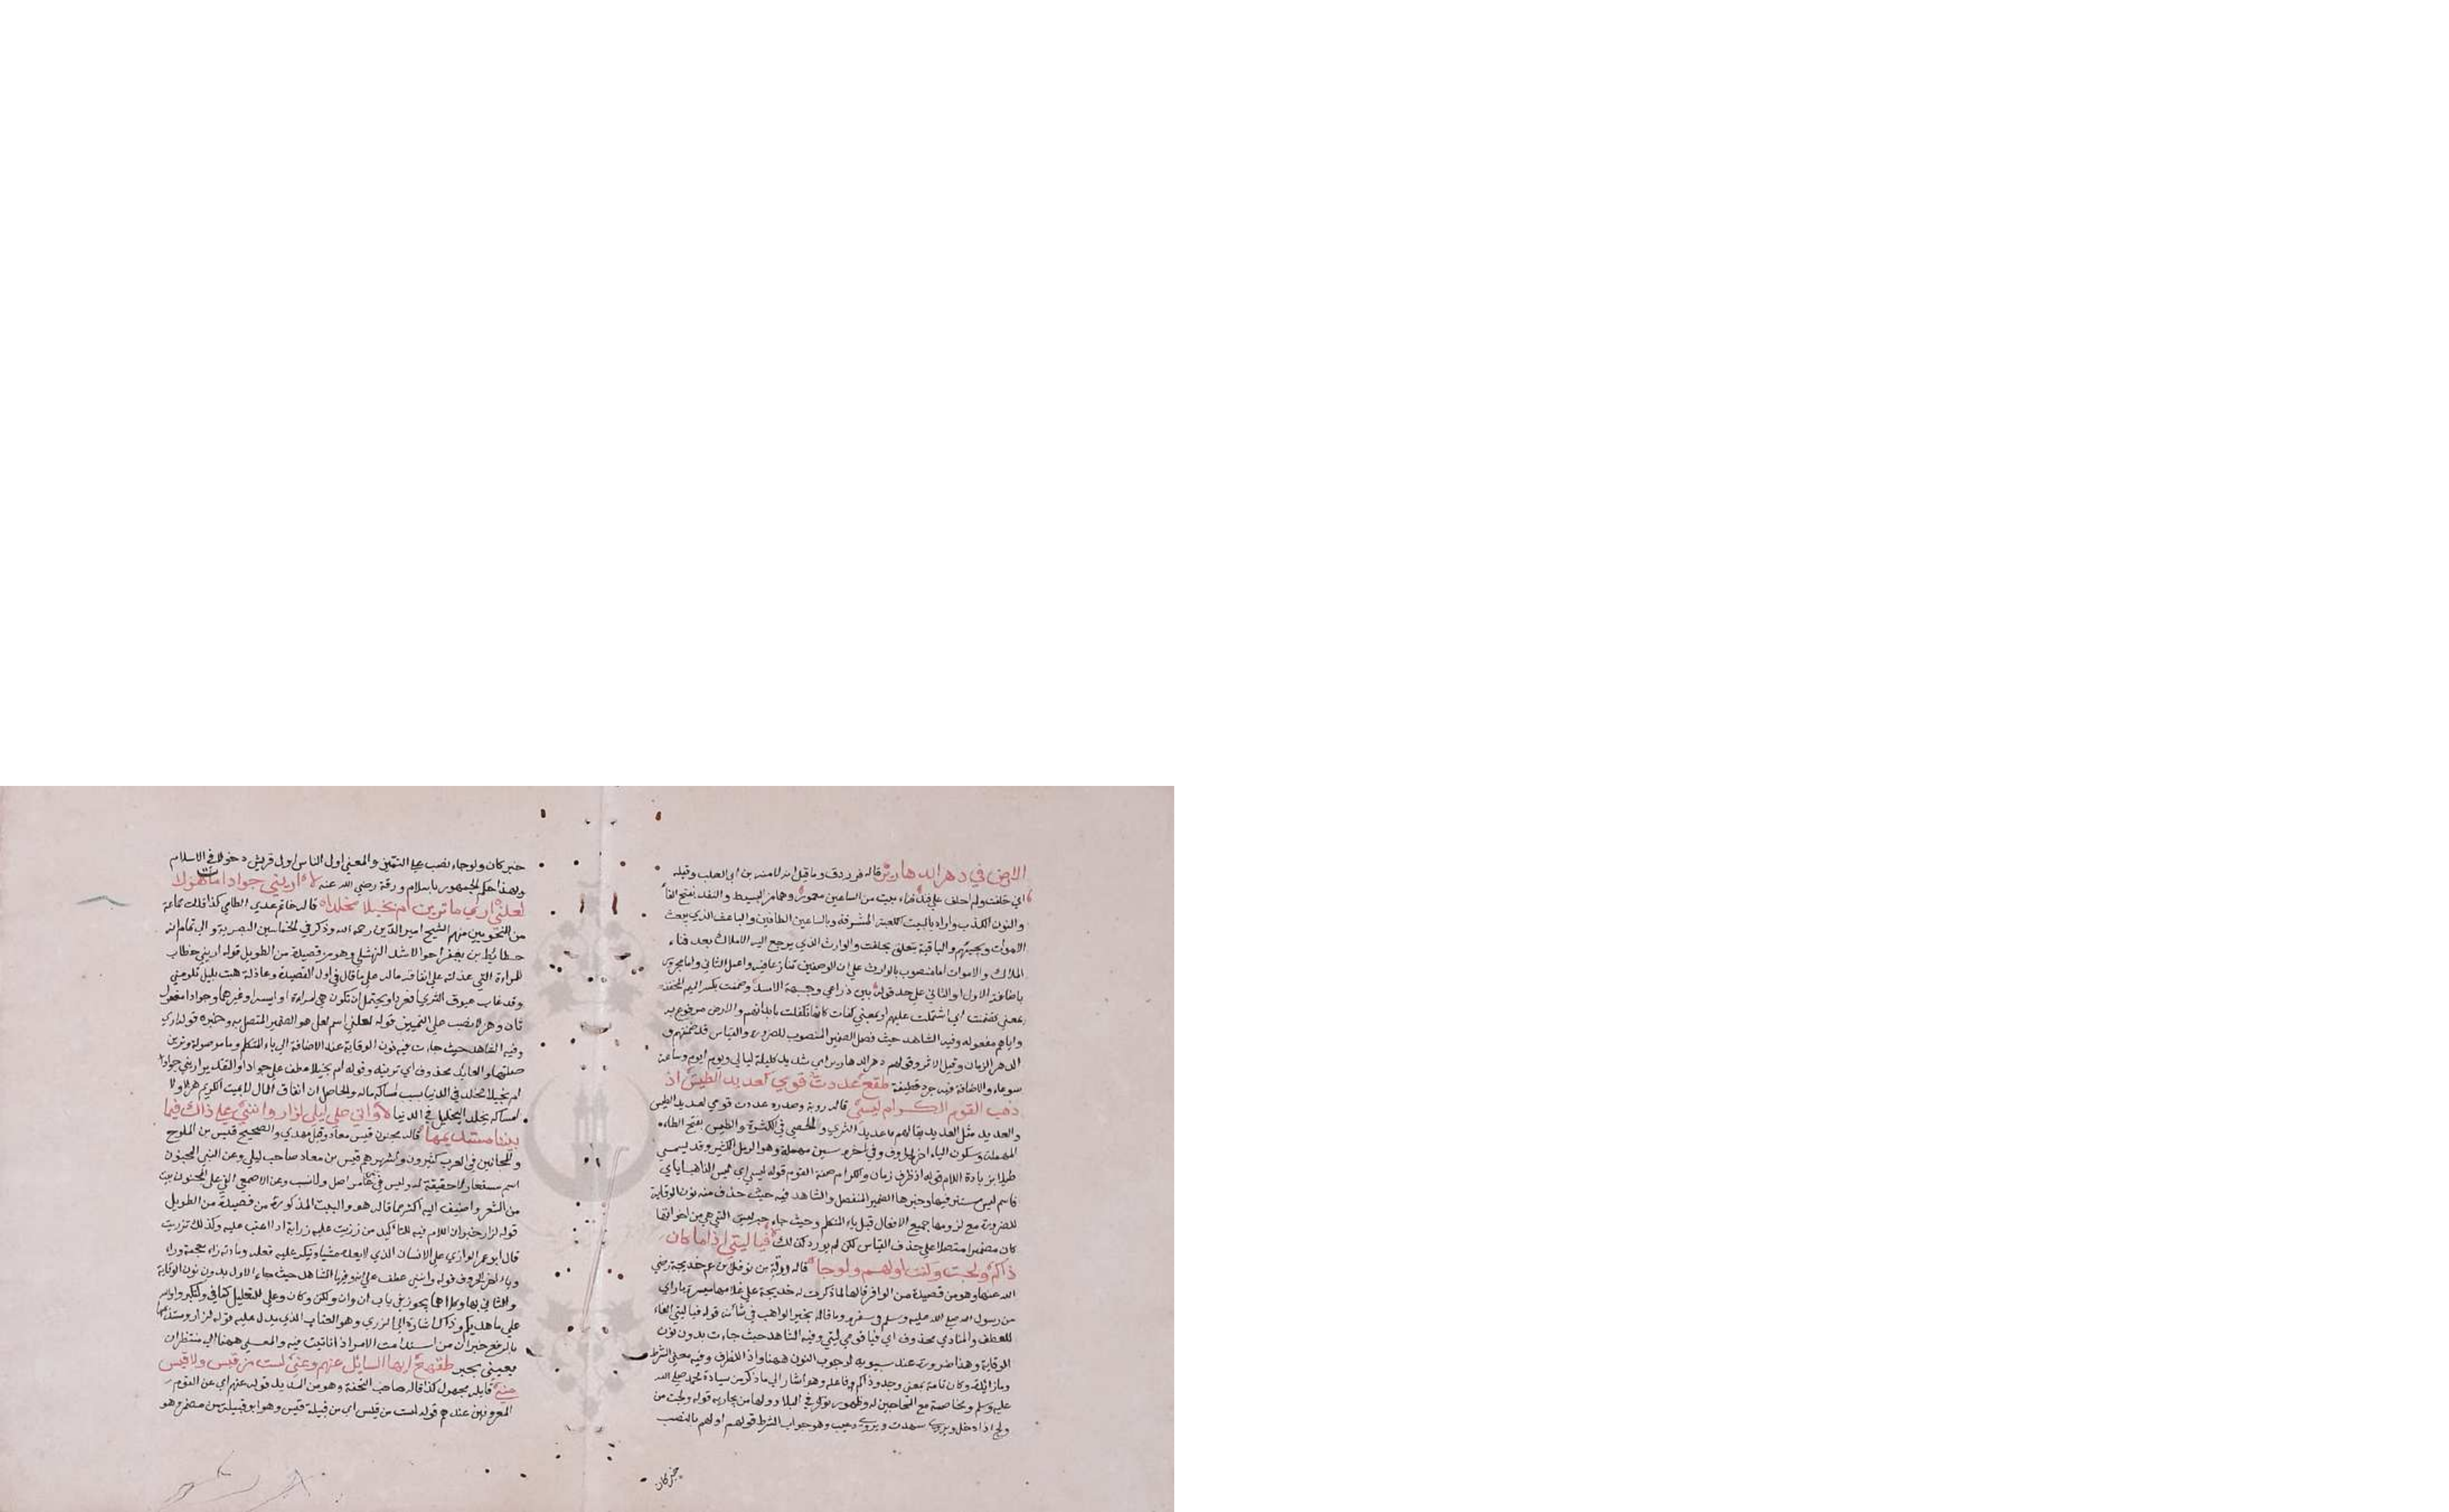 الارض في دهر الدهارير قاله فرزدق وما قيل انه لامية بن ابي الصلت وقبله
اي حلفت ولم احلف على فند فناء بيت من الساعين معمور وهما من البسيط والفند بفتح الفا
والنون الكذب واراد بالبيت الكعبة المشرفة وبالساعين الطائفين والباعث الذي يبعث
الاموات ويحييهم والباقية يتعلق بحلفت والوارث الذي يرجع اليه الاملاك بعد فناء
الملاك والاموات اما منصوب بالوارث على ان الوصفين تنازعا فيه واعمل الثاني واما مجرور
باضافة الاول او الثاني على حد قوله بين ذراعي وجبهة الاسد وضمنت بكسر الميم المخففة
بمعنى تضمنت اي اشتملت عليهم او بمعنى كفلت كانها تكفلت بابدانهم والارض مرفوع به
واياهم مفعوله وفيه الشاهد حيث فصل الضمير المنصوب للضرورة والقياس قد ضمنتهم و
الدهر الزمان وقيل الا وقولهم دهر الدهارير اي شديد كليلة ليالي ويوم ايوم وساعة
سوعاء والاضافة فيه جرد قطيفة طقع عددت قومي كعديد الطيس اذ
ذهب القوم الكرام ليسي قاله روبة وصدره عددت قومي كعديد الطيس
والعديد مثل العدد يقال هم عديد الثري والحصى في الكثرة والطيس بفتح الطاء
المهملة وسكون الياء اخر الحروف وفي اخره سين مهملة وهو الرمل الكثير وقد يسمى
طيلا بزيادة اللام قوله اذ ظرف زمان والكرام صفة القوم قوله ليسي اي ليس الذاهب اياي
فاسم ليس مستتر فيها وخبرها الضمير المنفصل والشاهد فيه حيث حذف منه نون الوقاية
للضرورة مع لزومها جميع الافعال قبل ياء المتكلم وحيث جاء خبر ليس التي هي من اخواتها
كان مضمرا متصلا على حذف القياس لكن لم يورد كذلك فيا ليتي اذا ما كان
ذاكم ولجت وكنت اولهم ولوجا قاله ورقة بن نوفل بن عم خديجة رضي
الله عنها وهو من قصيدة من الوافر قالها لما ذكرت له خديجة على غلامها ميسرة ما راي
من رسول الله صلى الله عليه وسلم في سفره وما قاله بحيرا الراهب في شانه قوله فيا ليتي الفاء
للعطف والمنادي محذوف اي فيا قومي ليتي وفيه الشاهد حيث جاءت بدون نون
الوقاية وهذا ضرورة عند سيبويه لوجوب النون ههنا واذا للظرف وفيه معنى الشرط
وما زائدة وكان تامة بمعنى وجد وذاكم فاعله وهو اشار الى ما ذكر من سيادة محمد صلى الله
عليه وسلم ومخاصمة مع المحاجين له وظهور نوره في البلاد ولها من يحاربه قوله ولجت من
ولج اذا دخل ويروى شهدت ويروى وهو جواب الشرط قوله اولهم بالنصب
خبر كان
خبر كان ولوجا نصب على التمييز والمعنى اول الناس اول قريش دخولا في الاسلام
وبهذا حكم الجمهور باسلام ورقة رضي الله عنه لاه اريني جوادا مات هزلا
لعلني ارى ما ترين ام بخيلا مخلدا قاله حاتم عدي الطاي كذا قالت جماعة
من النحويين منهم الشيخ اميرالدين رحمه الله وذكر في الحماسين البصرية و ابي تمام انه
حطائط بن يعفر اخو الاسد النهشلي وهو من قصيدة من الطويل قوله اريني خطاب
للمراة التي عذلته على انفاقه ماله على ما قال في اول القصيدة وعاذلة هبت بليل تلومني
وقد غاب عيوق الثريا فغردا ويحتمل ان تكون هي امراة او ابنته او غيرهما وجوادا مفعول
ثان وهزلا نصب على التمييز قوله لعلني اسم لعل هو الضمير المتصل به وخبره قوله اري
وفيه الشاهد حيث جاءت فيه نون الوقاية عند الاضافة الى ياء المتكلم وما موصولة وترين
صلتها والعائد محذوف اي ترينه وقوله ام بخيلا عطف على جوادا والتقدير اريني جوادا
ام بخيلا مخلد في الدنيا بسبب امساكه ماله والحاصل ان انفاق المال لا يميت الكريم هزلا ولا
امساكه يخلد البخيل في الدنيا لاه واني على ليلى لزار وانني على ذاك فيما
بيننا مستديمها قاله مجنون قيس معاد وقيل مهدي والصحيح قيس بن الملوح
والمجانين في العرب كثيرون واشهرهم قيس بن معاد صاحب ليلى وعن النبي المجنون
اسم مستعار لا حقيقة له وليس في عامر اصل ولا نسب وعن الاصمعي القي على المجنون
من الشعر واضيف اليه اكثر مما قاله هو والبيت المذكورة من قصيدة من الطويل
قوله لزار خبر ان واللام فيه للتاكيد من زريت عليه زراية اذا اعتب عليه وكذلك تزريت
قال ابو عمر الزاري على الانسان الذي لا يعده شيا وينكر عليه فعله ومادته زاء معجمة وراء
وياء اخر الحروف قوله وانني عطف على اني وفيها الشاهد حيث جاء الاول بدون نون الوقاية
والثاني بها وكلاهما يجوز في باب ان وان ولكن وكان وعلى للتعليل كما في ولتكبروا الله
على ما هديكم وذاك اشارة الى الزري وهو العتاب الذي يدل عليه قوله لزار ومستديمها
بالرفع خبر ان من استدامت الامر اذا تانيت فيه والمعنى ههنا اني منتظر ان
يعيبني بخير طقهع ايها السائل عنهم وعني لست من قيس ولا قيس
مني قايله مجهول كذا قاله صاحب التحفة وهو من المديد قوله عنهم اي عن القوم
المعروفين عندهم قوله لست من قيس اي من قبيلة قيس وهو ابو قبيلة من مضر وهو